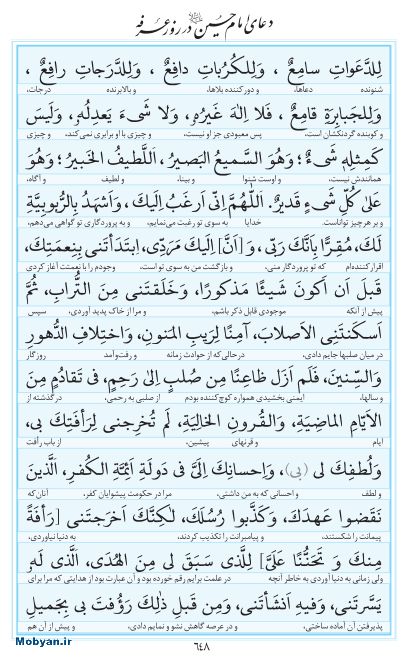 دعای امام حسین علیه‌السلام در روز عرفه
لِلدَّعَواتِ سامِعٌ ، وَلِلكُرُباتِ دافِعٌ ، وَلِلدَّرَجاتِ رافِعٌ ،
شنونده دعاها، و دور کننده بلاها، و بالابرنده درجات،
وَلِلجَبابِرَةِ قامِعٌ ، فَلا اِلهَ غَيرُهُ ، وَلا شَیءَ يَعدِلُهُ، وَلَيسَ
و کوبنده گردنکشان است، پس معبودی جز او نیست، و چیزی با او برابری نمی‌کند، و چیزی
كَمِثلِهِ شَیءٌ؛ وَهُوَ السَّميعُ البَصيرُ، اَللَّطيفُ الخَبيرُ؛ وَهُوَ
همانندش نیست، و اوست شنوا و بینا، و لطیف و آگاه،
عَلىٰ كُلِّ شَیءٍ قَديرٌ. اَللّهُمَّ اِنّی اَرغَبُ اِلَيكَ، وَاَشهَدُ بِالرُّبوبِيَّةِ
و بر هر چیز تواناست. خدایا به سوی تو رغبت می‌نمایم، و به پروردگاری تو گواهی می‌دهم،
لَكَ، مُقِرًّا بِاَنَّكَ رَبّی، وَ [اَنَّ] اِلَيكَ مَرَدّی، اِبتَدَأتَنی بِنِعمَتِكَ،
اقرار کننده‌ام که تو پروردگار منی، و بازگشت من به سوی تو است، وجودم را با نعمتت آغاز کردی
قَبلَ اَن اَكونَ شَيئًا مَذكورًا، وَخَلَقتَنی مِنَ التُّرابِ، ثُمَّ
پیش از آنکه موجودی قابل ذکر باشم، و مرا از خاک پدید آوردی، سپس
اَسكَنتَنِی الاَصلابَ، آمِنًا لِرَيبِ المَنونِ، وَاختِلافِ الدُّهورِ
در میان صلبها جایم دادی، درحالی‌که از حوادث زمانه و رفت‌وآمد روزگار
وَالسِّنينَ، فَلَم اَزَل ظاعِنًا مِن صُلبٍ اِلىٰ رَحِمٍ، فی تَقادُمٍ مِنَ
و سالها، ایمنی بخشیدی همواره کوچ‌کننده بودم از صلبی به رحمی، در گذشته از
الاَيّامِ الماضِيَةِ، وَالقُرونِ الخالِيَةِ، لَم تُخرِجنی لِرَأفَتِكَ بی،
ایام و قرنهای پیشین، از باب رأفت
وَلُطفِكَ لی (بی)، وَاِحسانِكَ اِلَیَّ فی دَولَةِ اَئِمَّةِ الكُفرِ، الَّذينَ
و لطف و احسانی که به من داشتی، مرا در حکومت پیشوایان کفر، آنان‌که
نَقَضوا عَهدَكَ، وَكَذَّبوا رُسُلَكَ، لٰكِنَّكَ اَخرَجتَنی [رَأفَةً
پیمانت را شکستند، و پیامبرانت را تکذیب کردند، به دنیا نیاوردی،
مِنكَ وَ تَحَنُّنًا عَلَیَّ] لِلَّذی سَبَقَ لی مِنَ الهُدَى، اَلَّذی لَهُ
ولی زمانی به دنیا آوردی به خاطر آنچه در علمت برایم رقم خورده بود و آن عبارت بود از هدایتی که مرا برای
يَسَّرتَنی، وَفيهِ اَنشَأتَنی، وَمِن قَبلِ ذٰلِكَ رَؤُفتَ بی بِجَميلِ
پذیرفتن آن آماده ساختی، و در عرصه گاهش نشو و نمایم دادی، و پیش از آن هم
۶۴۸
Mobyan.ir